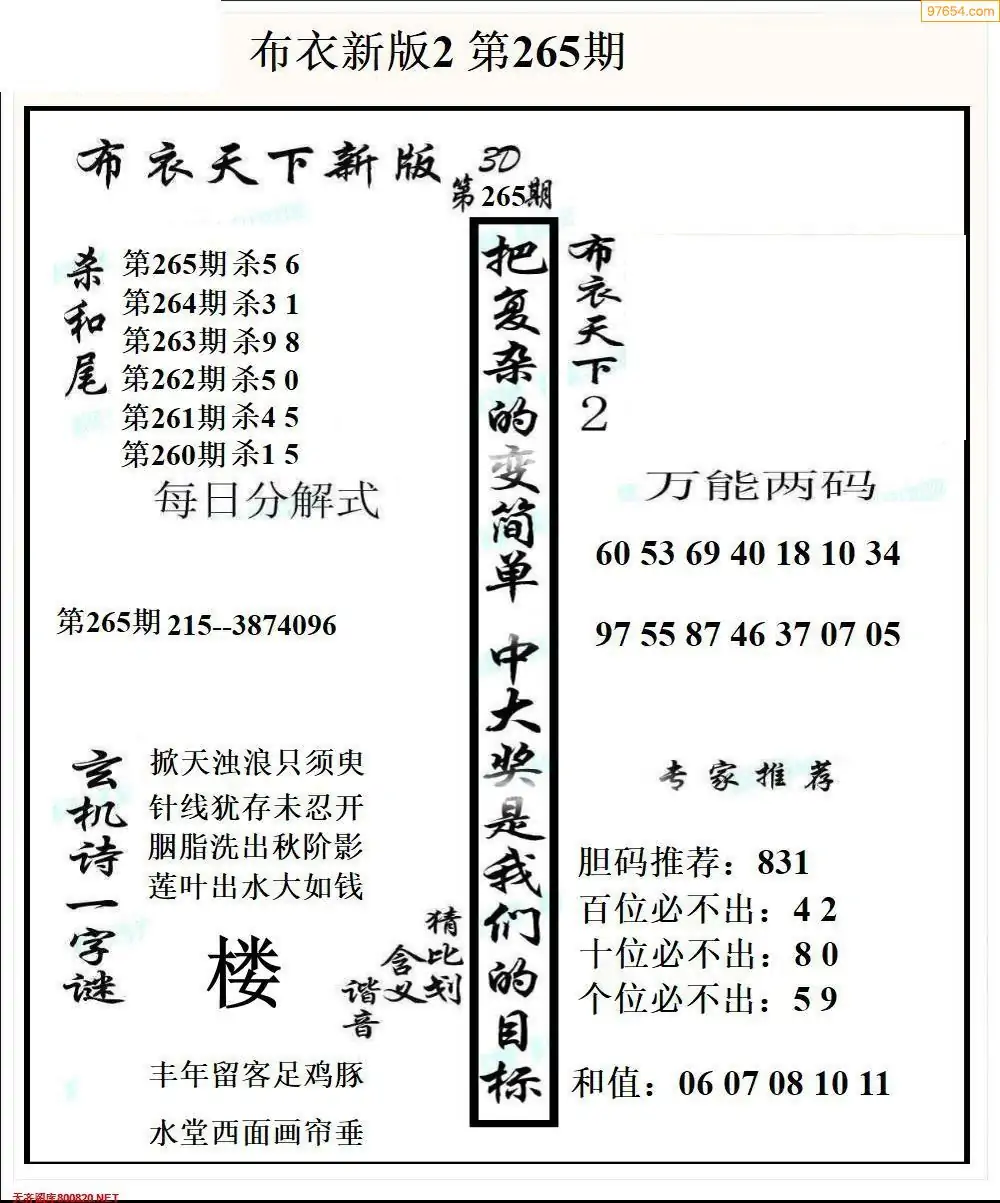 97654.com
布衣新版2 第265期
布衣天下新版
3D
第265期
杀和尾
第265期杀5 6
第264期杀3 1
第263期杀9 8
第262期杀5 0
第261期杀4 5
第260期杀1 5
每日分解式
第265期 215--3874096
玄机诗一字谜
掀天浊浪只须臾
针线犹存未忍开
胭脂洗出秋阶影
莲叶出水大如钱
楼
猜比划
含义
谐音
丰年留客足鸡豚
水堂西面画帘垂
把复杂的变简单 中大奖是我们的目标
布衣天下2
万能两码
60 53 69 40 18 10 34
97 55 87 46 37 07 05
专家推荐
胆码推荐：831
百位必不出：4 2
十位必不出：8 0
个位必不出：5 9
和值：06 07 08 10 11
800820.NET